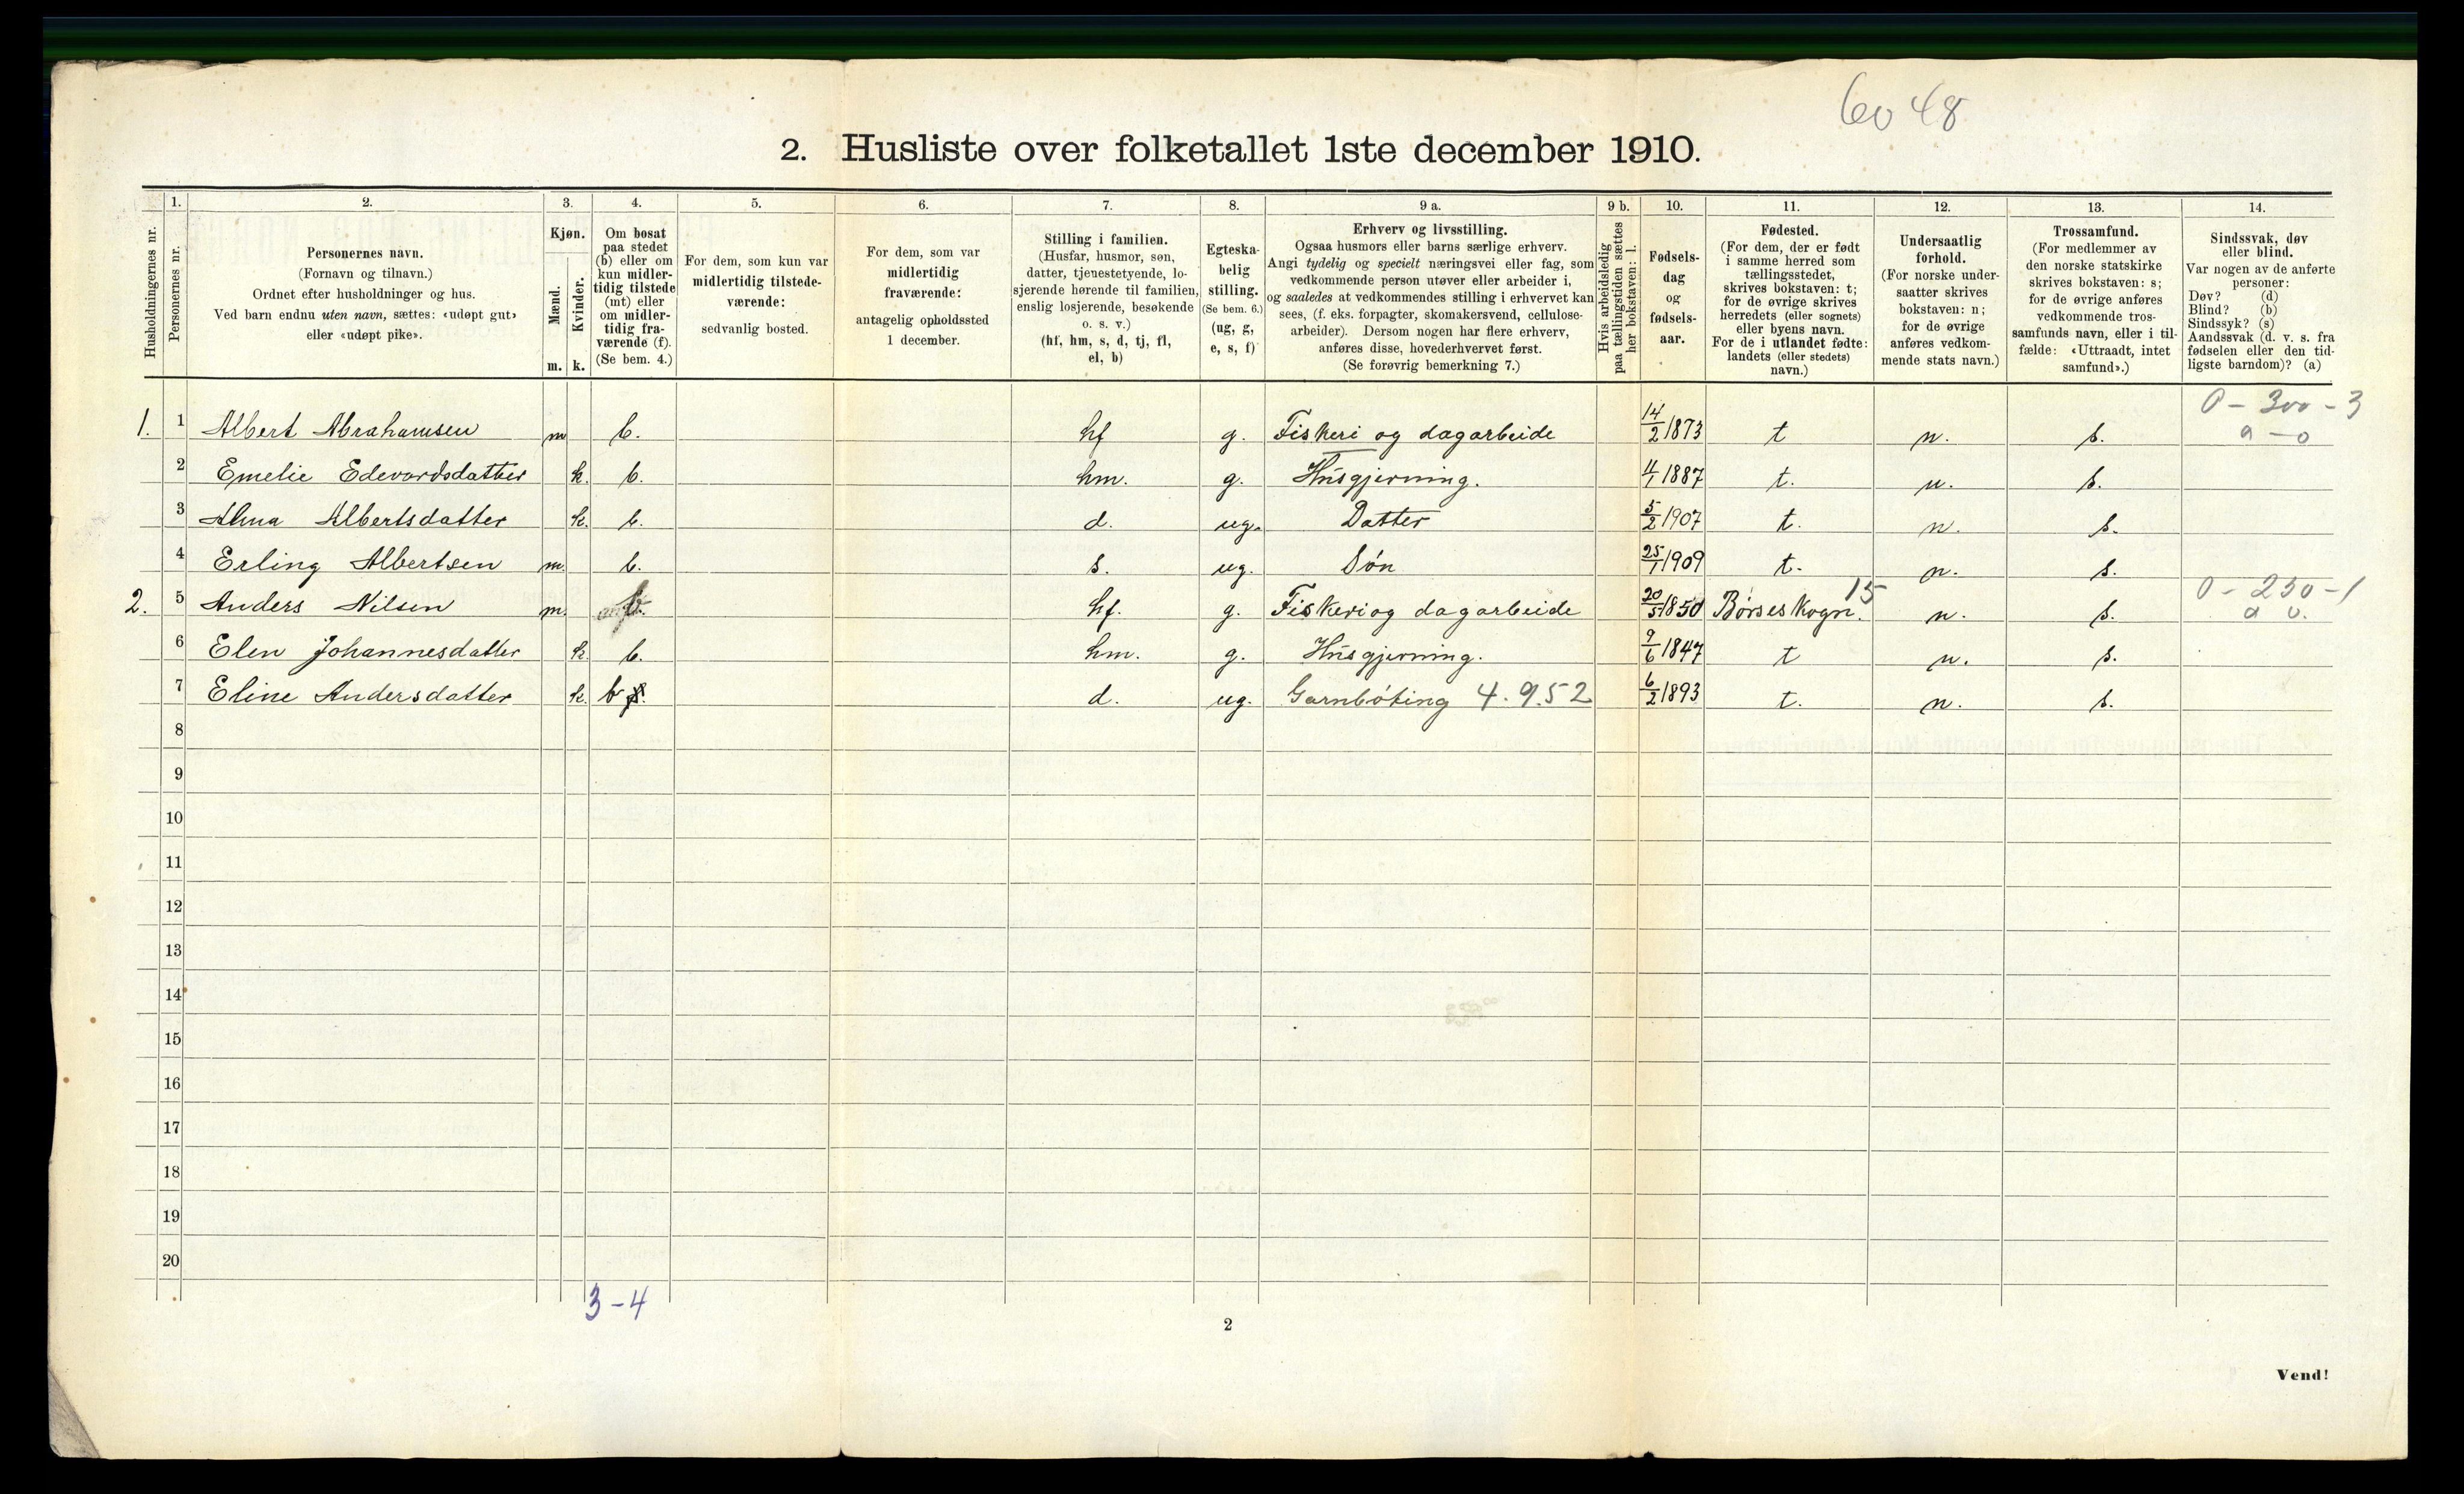 6048
2. Husliste over folketallet 1ste december 1910.
Husholdningernes nr.
1. Personernes nr.
2.
Personernes navn.
(Fornavn og tilnavn.)
Ordnet efter husholdninger og hus.
Ved barn endnu uten navn, sættes: «udøpt gut»
eller «udøpt pike».
3.
Kjøn.
Mænd. m.
Kvinder. k.
4.
Om bosat
paa stedet
(b) eller om
kun midler-
tidig tilstede
(mt) eller
om midler-
tidig fra-
værende (f).
(Se bem. 4.)
5.
For dem, som kun var
midlertidig tilstede-
værende:
sedvanlig bosted.
6.
For dem, som var
midlertidig
fraværende:
antagelig opholdssted
1 december.
7.
Stilling i familien.
(Husfar, husmor, søn,
datter, tjenestetyende, lo-
sjerende hørende til familien,
enslig losjerende, besøkende
o. s. v.)
(hf, hm, s, d, tj, fl,
el, b)
8.
Egteska-
belig
stilling.
(Se bem. 6.)
(ug, g,
e, s, f)
9 a.
Erhverv og livsstilling.
Ogsaa husmors eller barns særlige erhverv.
Angi tydelig og specielt næringsvei eller fag, som
vedkommende person utøver eller arbeider i,
og saaledes at vedkommendes stilling i erhvervet kan
sees, (f. eks. forpagter, skomakersvend, cellulose-
arbeider). Dersom nogen har flere erhverv,
anføres disse, hovederhvervet først.
(Se forøvrig bemerkning 7.)
9 b.
Hvis arbeidsledig
paa tællingstiden sættes
her bokstaven: l.
10.
Fødsels-
dag
og
fødsels-
aar.
11.
Fødested.
(For dem, der er født
i samme herred som
tællingsstedet,
skrives bokstaven: t;
for de øvrige skrives
herredets (eller sognets)
eller byens navn.
For de i utlandet fødte:
landets (eller stedets)
navn.)
12.
Undersaatlig
forhold.
(For norske under-
saatter skrives
bokstaven: n;
for de øvrige
anføres vedkom-
mende stats navn.)
13.
Trossamfund.
(For medlemmer av
den norske statskirke
skrives bokstaven: s;
for de øvrige anføres
vedkommende tros-
samfunds navn, eller i til-
fælde: «Uttraadt, intet
samfund».)
14.
Sindssvak, døv
eller blind.
Var nogen av de anførte
personer:
Døv? (d)
Blind? (b)
Sindssyk? (s)
Aandssvak (d. v. s. fra
fødselen eller den tid-
ligste barndom)? (a)
0 - 300 - 3
1. 1 Albert Abrahamsen m b. hf g. Fiskeri og dagarbeide 14/2 1873 t n. s. a - o
2 Emelie Edevardsdatter k. b. hm. g. Husgjerning. 4/1 1887 t. n. s.
3 Alma Albertsdatter k. b. d. ug. Datter 5/2 1907 t. n. s.
4 Erling Albertsen m. b. s. ug. Søn 25/1 1909 t. n. s.
15 0 - 230 - 1
2. 5 Anders Nilsen m. b. hf. g. Fiskeri og dagarbeide 20/5 1850 Børseskogn. n. s. a o.
6 Elen Johannesdatter k. b. hm. g. Husgjerning. 9/6 1847 t n. s.
7 Eline Andersdatter k. b d. ug. Garnbøting 4.9.52 6/2 1893 t. n. s.
8
9
10
11
12
13
14
15
16
17
18
19
20
3-4
2
Vend!